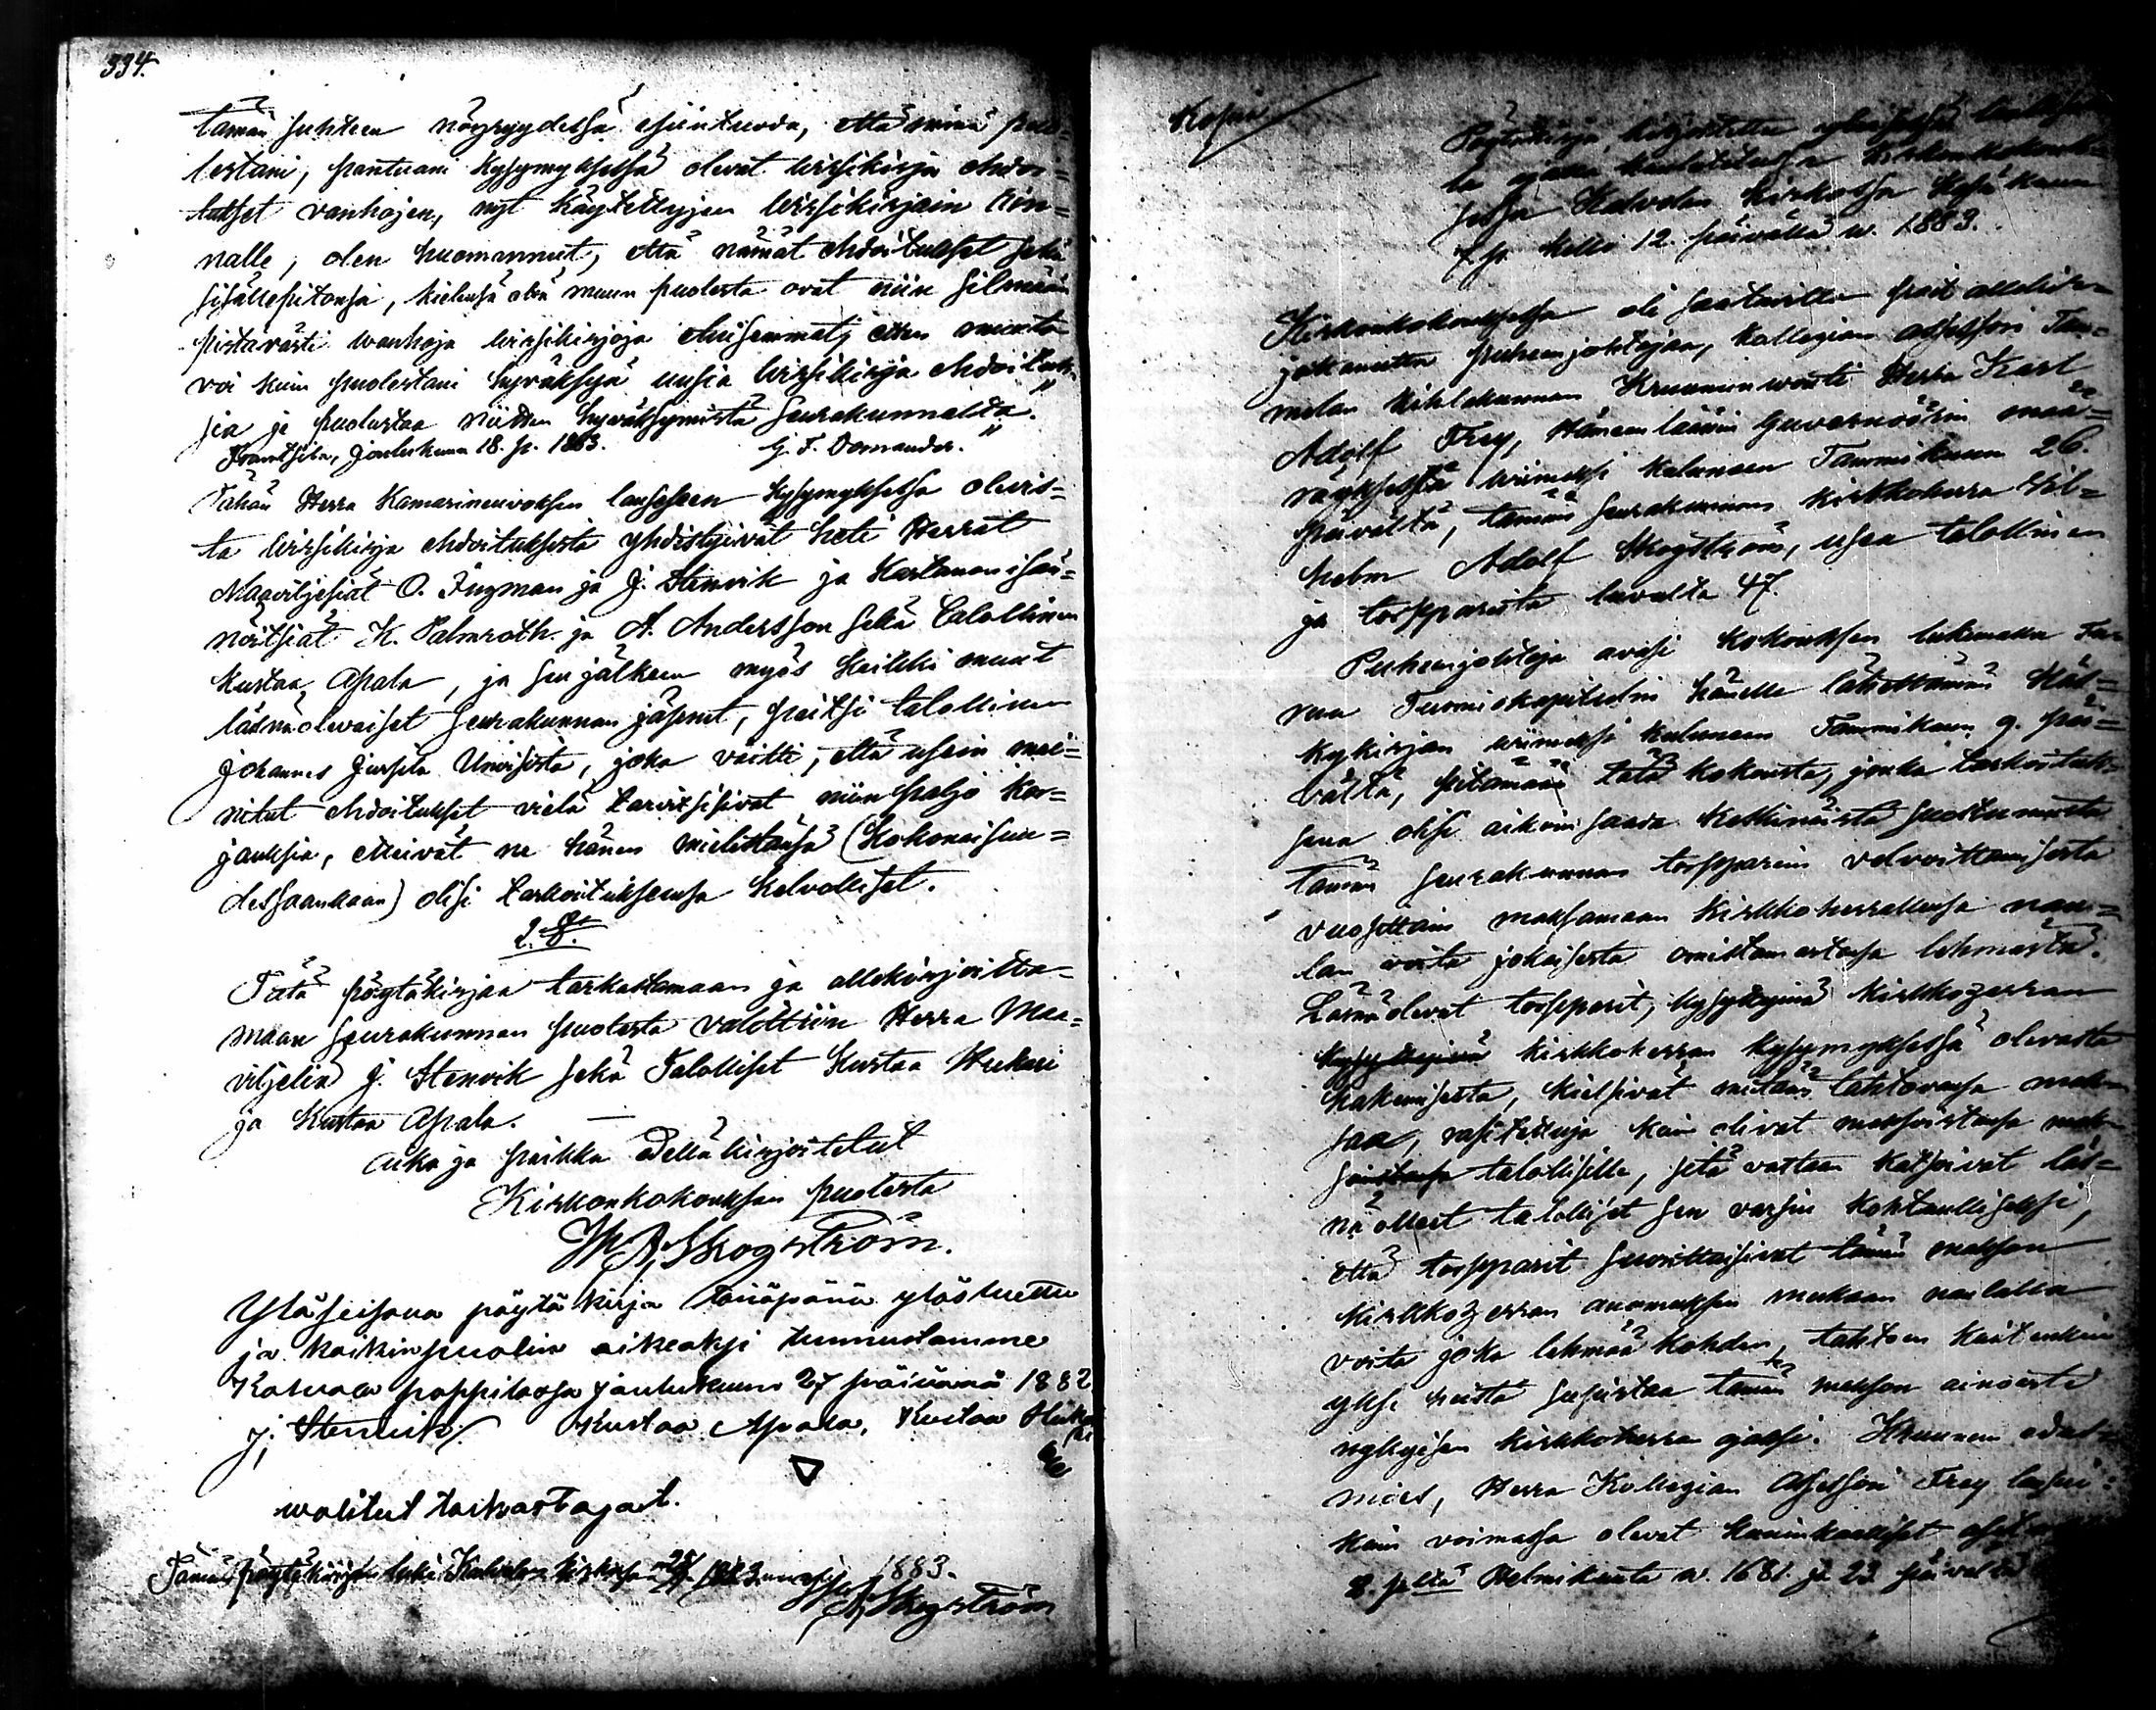 334.
tämän suhteen nöyryydessä esiintuoda, että minä puo-
lestani, pantuani kysymyksessä olevat wirsikirja ehdoi-
tukset vanhojen, nyt käytettyjen wirsikirjain rin-
nalle, olen huomannut, että nämät ehdoitukset sekä
sisällepitonsa, kielensä että muun puolesta ovat niin silmään
pistävästi wanhoja wirsikirjoja ehuisemmat, etten muuta
voi kuin puolestani hyväksyä uusia wirsikirja ehdoituk-
sia ja puolustaa niitten hyväksymistä seurakunnalta."
Frantsila, Joulukuun 18. p. 1883. G. F. Domander."
Tähän Herra Kamarineuvoksen lauseseen kysymyksessä olevis-
ta wirsikirja ehdoituksista yhdistyivät heti Herrat
Maaviljeliät O. Fugman ja J. Stenvik ja Kartanon isän-
nöitsiät K. Palmroth ja A. Andersson sekä talollinen
Kustaa Apala, ja sen jälkeen myös kaikki muut
läsnäolevaiset seurakunnan jäsenet, paitsi talollinen
Johannes Jussila Unisista, joka väitti, että usein mai-
nitut ehdoitukset vielä tarvitsisivat niin paljo kor-
jauksia, etteivät ne hänen mielestänsä (kokonaisuu-
dessaankaan) olisi tarkoituksensa kelvolliset.
2. §.
Tätä pöytäkirjaa tarkastamaan ja allekirjoitta-
maan seurakunnan puolesta valittiin Herra Maa-
viljeliä J. Stenvik sekä Talolliset Kustaa Heikari
ja Kustaa Apala.
Aika ja paikka Edelläkirjoitetut
Kirkonkokouksen puolesta
W. A. Skogström.
Yläseisova pöytäkirja tänäpänä ylösluettu
ja kaikinpuolin oikeaksi tunnustamme
Kalvola pappilassa Joulukuun 27 päivänä 1882
J. Stenvik. Kustaa Apala. Kustaa Heikari
walitut tarkastajat.
Tämän pöytäkirjan luki Kalvolan kirkossa 1883.
A. Skogström
Kopia
Pöytäkirja, kirjoitettu yleisessä laillises-
la ajalla kuulutetussa kirkonkokouk-
sessa Kalvolan kirkossa Kesäkuun
7. p. kello 12. päivällä w. 1883.
Kirkonkokouksessa oli saatavilla paitsi allekir-
joittanutta puheenjohtajaa, Kollegian assessori Tam-
melan kihlakunnan Kruununwouti Herra Karl
Adolf Frey, Hämeen läänin Guvernöörin mää-
räyksestä wiimeksi kuluneen Tammikuun 26.
päivältä, tämän seurakunnan kirkkoherra Vil-
helm Adolf Skogström, usea talollinen
ja torpparista luvulta 47.
Puheenjohtaja avasi kokouksen lukemalla Tu-
run Tuomiokapitulin hänelle lähettämän Käs-
kykirjan wiimeksi kuluneen Tammikuun 9. päi-
vältä, pitämään tätä kokousta, jonka tarkoituk-
sena olisi aikoin saada keskinäistä suostumusta
tämän seurakunnan torpparein velvoittamisesta
vuosittain maksamaan kirkkoherrallensa nau-
lan voita jokaisesta omistamastansa lehmästä.
Läsnäolevat torpparit, kysyttyinä kirkkoherran
kysyttyinä kirkkoherran kysymyksessä olevasta
hakemisesta, kielsivät mitään tahtovansa mak-
saa, rasitettuja kuin olivat maksuistansa mak-
suistansa talollisille, sitä vastaan katsoivat läs-
nä olleet talolliset sen varsin kohtuulliseksi,
että torpparit suorittaisivat tämän maksun
kirkkoherran anomuksen mukaan naulalla
voita joka lehmää kohden, tahtoen kuitenkin
yksi heistä supistaa tämän maksun ainoasti
nykyisen kirkkoherran ajaksi. Kruunun edus-
mies, Herra Kollegian Assessori Frey lausui:
kuin voimassa olevat kuninkaalliset asetukset
8. p:ltä Helmikuuta w. 1681. ja 23 päivältä